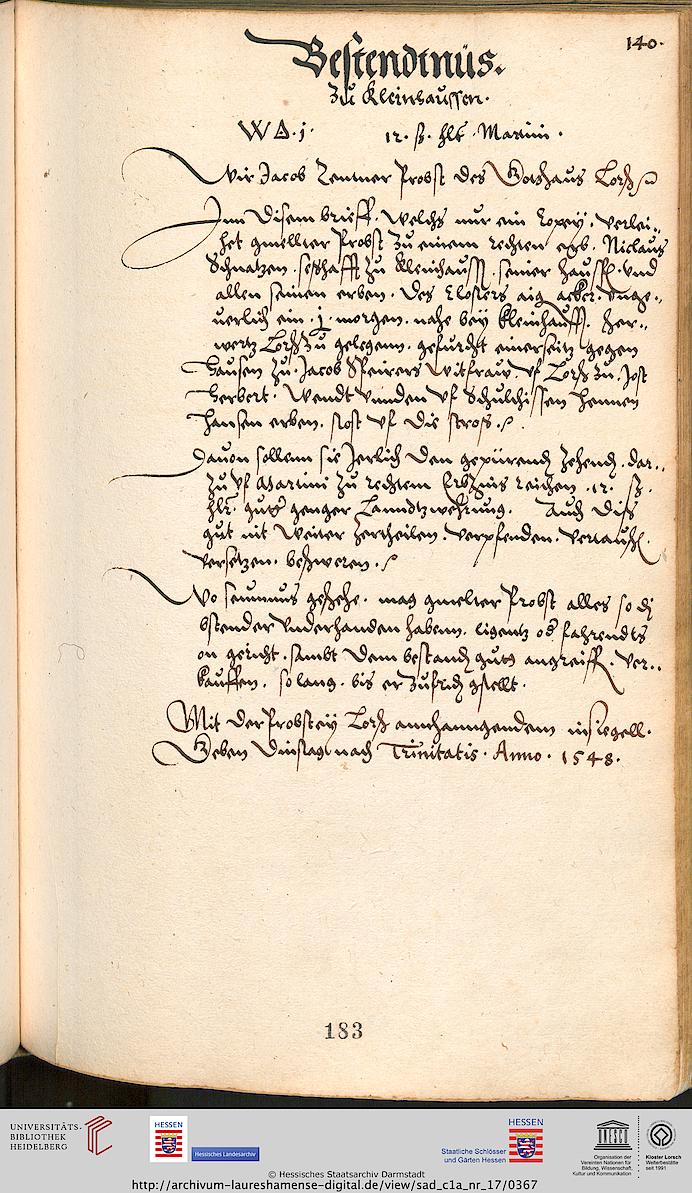 140.
Bestendtnüs.
Zu Kleinhaussen.
W Δ. j. 12. ß. hlr. Martini.
Wir Jacob Zentner Probst des Gotshaus Lorß
Inn Disem brieff. Welchs nur ein Copey. verlei-
het gmellter Probst Zu einem rechten erb. Niclaus
Schnatzen. seßhafft zu Kleinhauss. seiner haußf. vnd
allen seinen erben. Des Closters aig acker. vnge-
uerlich ein. j. morgen. nahe bey kleinhauß. her-
wertz Lorß zu gelegenn. gefurcht einerseitz gegen
Hausen zu. Jacob Speirers Witfraw. vf Lorß zu. Jost
Herbert. Wendt vnden vf Schulthissen Hennen
Hansen erben. stost vf die stroß.
Dauon sollenn sie Jerlich den gepürend Zehend. dar-
zu vf Martini zu rechtem Erbzins reichen. 12. ß.
hlr. guts genger Lanndtzwehrung. Auch diß
gut nit weiter zertheilen. verpfenden. verkauff.
versetzen. beschweren.
Wo seumnus geschehe. mag gmelter Probst alles so dj
bstender vnderhanden habenn. ligentz od. fahrendts
on gericht. sambt dem bestand guts angreiff. ver-
kauffen. so lang. bis er zufrid gstellt.
Mit der Probstey Lorß annhanngendem insiegell.
Geben Dinstag nach Trinitatis. Anno. 1548.
183
UNIVERSITÄTS-
BIBLIOTHEK
HEIDELBERG
HESSEN
Hessisches Landesarchiv
Staatliche Schlösser
und Gärten Hessen
HESSEN
UNESCO
Organisation der
Vereinten Nationen für
Bildung, Wissenschaft,
Kultur und Kommunikation
Kloster Lorsch
Welterbestätte
seit 1991
© Hessisches Staatsarchiv Darmstadt
http://archivum-laureshamense-digital.de/view/sad_c1a_nr_17/0367